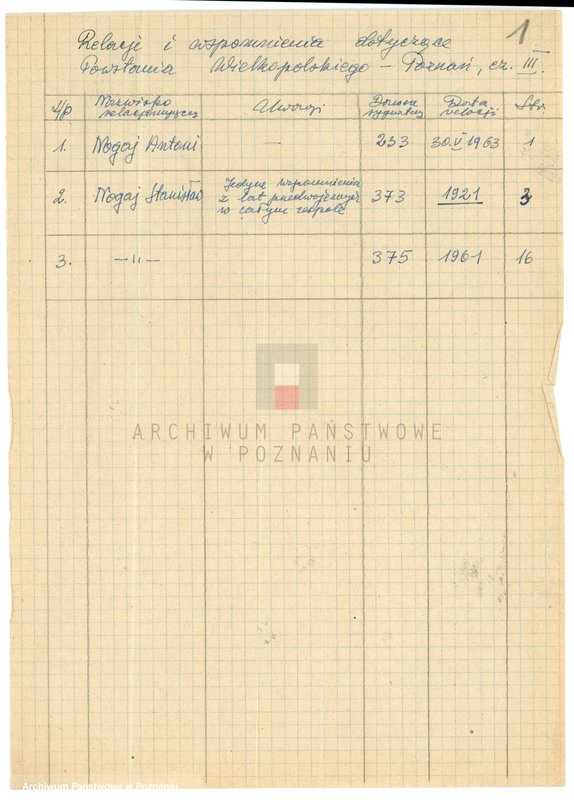 1
Relacje i wspomnienia dotyczące
Powstania Wielkopolskiego – Poznań, cz. III.
L/p Nazwisko relacjonującego Uwagi Dawna sygnatura Data relacji Str
1. Nogaj Antoni — 233 30.V.1963 1
2. Nogaj Stanisław Jedyne wspomnienia z lat przedwojennych w całym zespole 373 1921 3
3. —„— 375 1961 16
ARCHIWUM PAŃSTWOWE
W POZNANIU
Archiwum Państwowe w Poznaniu